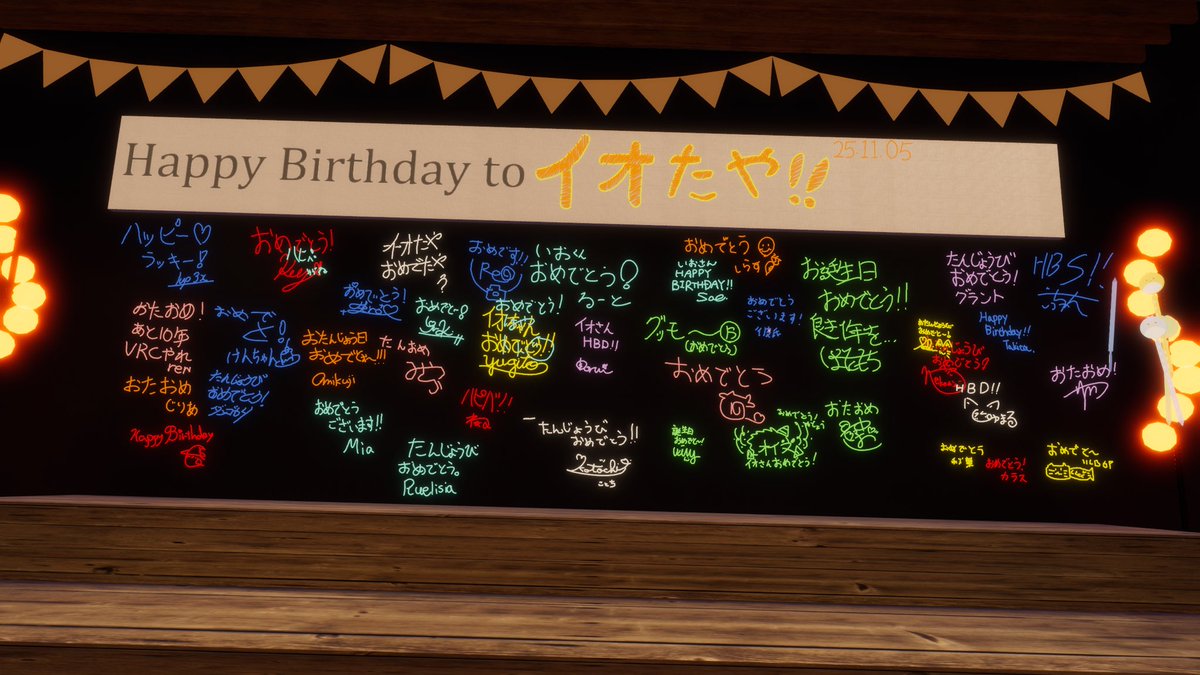 Happy Birthday to イオたや!!
25.11.05
ハッピー♡
ラッキー!
おめでとう!
イオたや
おめでたや
?
おめです!!
Reo
いおくん
おめでとう!
るーと
おめでとう
しらす
いおさん
HAPPY
BIRTHDAY!!
Soe
お誕生日
おめでとう!!
良き1年を…
たんじょうび
おめでとう!
グラント
HBS!!
おたおめ!
あと10年
VRCやれ
ren
おめで
とう!
けんちゃん
おめでとう!
おめでとう!
イオさん
HBD!!
おめでとう
ございます!
グッモ〜
(おめでとう)
Happy
Birthday!!
おたんじょう日
おめでとー!!!
Omikuji
たんおめ
おめでとう!
yugio
おめでとう
おたおめ!
おたおめ
じりあ
たんじょうび
おめでとう!
ハピバ!!
HBD!!
Happy Birthday
おめでとう
ございます!!
Mia
たんじょうび
おめでとう。
Ruelisia
たんじょうび
おめでとう!!
Kotochi
ことち
誕生日
おめでとー!
おめでとう!
イオさんおめでとう!
おたおめ
おめでとう
おめでとう!
カラス
おめでてー